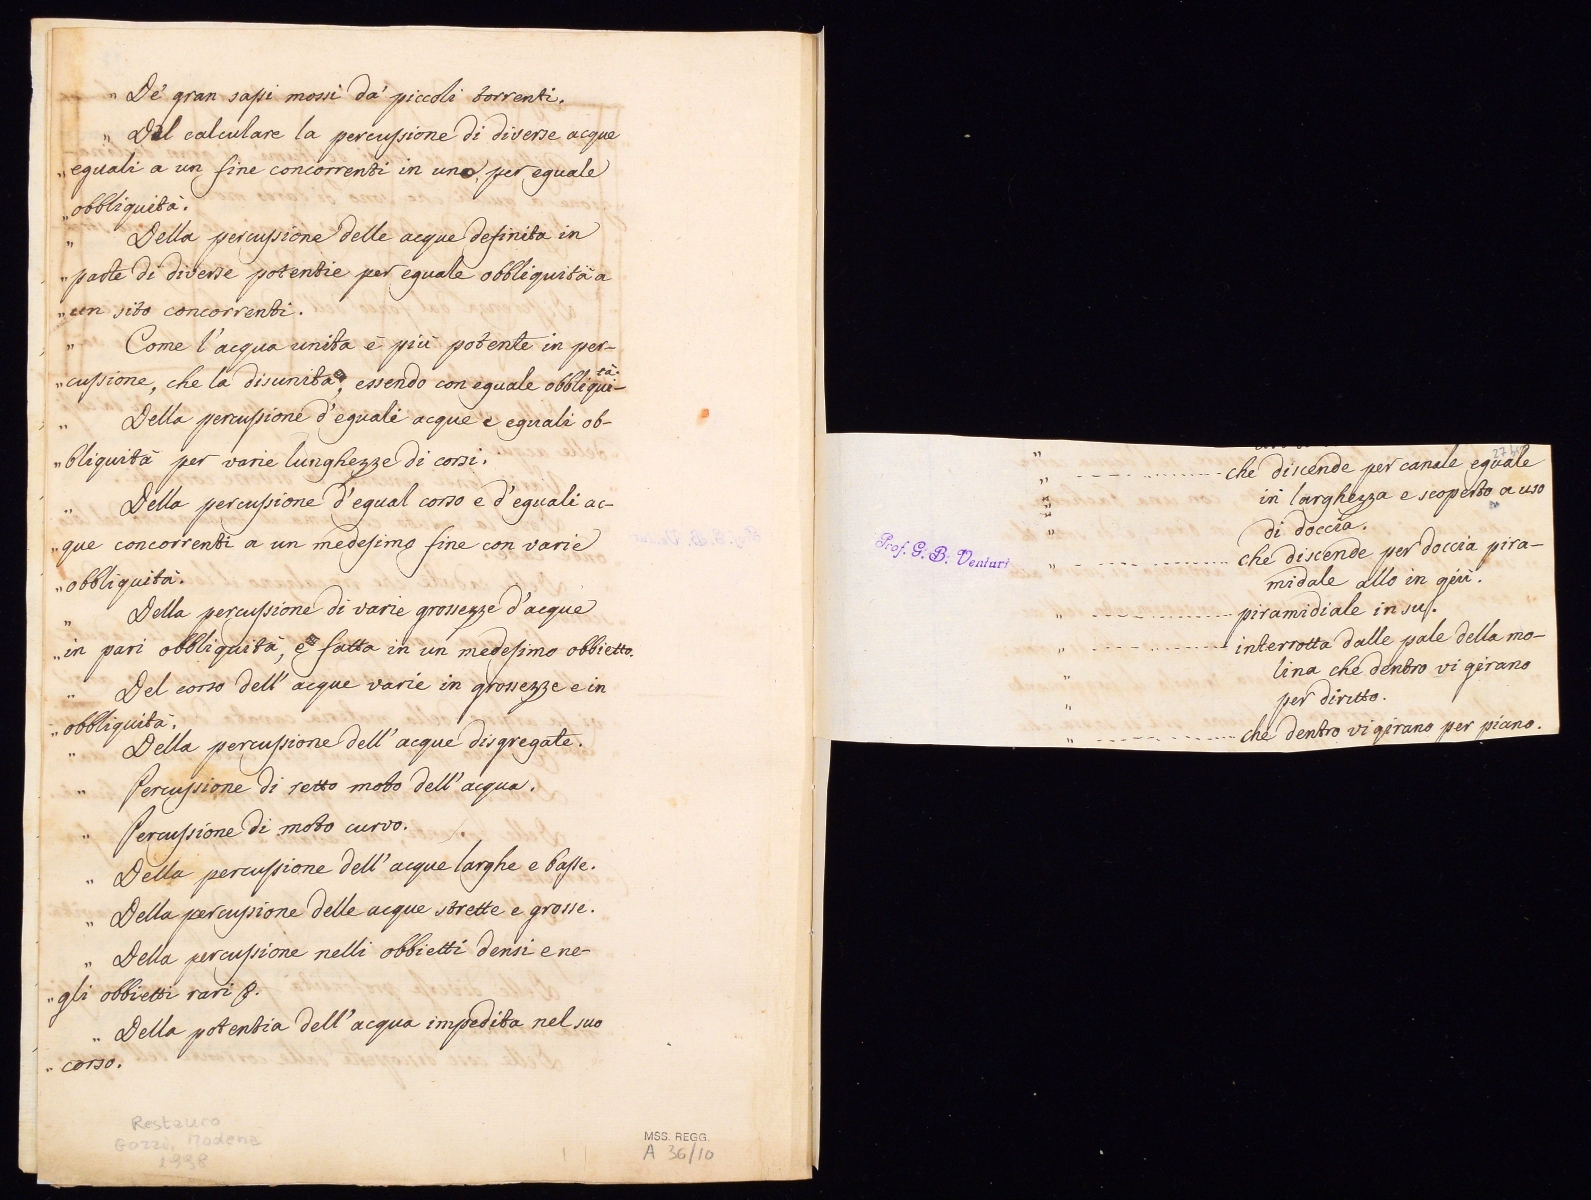 „ De' gran sassi mossi da' piccoli torrenti.
„ Del calculare la percussione di diverse acque
„ eguali a un fine concorrenti in uno, per eguale
„ obbliquità.
„ Della percussione delle acque definita in
„ parte di diverse potentie per eguale obbliquità a
„ un sito concorrenti.
„ Come l'acqua unita è più potente in per-
„ cussione, che la disunita, essendo con eguale obbliqui-tà.
„ Della percussione d'eguali acque e eguali ob-
„ bliquità per varie lunghezze di corsi.
„ Della percussione d'egual corso e d'eguali ac-
„ que concorrenti a un medesimo fine con varie
„ obbliquità.
„ Della percussione di varie grossezze d'acque
„ in pari obbliquità, e fatta in un medesimo obbietto.
„ Del corso dell'acque varie in grossezze e in
„ obbliquità.
„ Della percussione dell'acque disgregate.
„ Percussione di retto moto dell'acqua.
„ Percussione di moto curvo.
„ Della percussione dell'acque larghe e basse.
„ Della percussione delle acque strette e grosse.
„ Della percussione nelli obbietti densi e ne-
„ gli obbietti rari
„ Della potentia dell'acqua impedita nel suo
„ corso.
Restauro
Gozzi, Modena
1998
MSS. REGG.
A 36/10
Prof. G. B. Venturi
„ che discende per canale eguale
in larghezza e scoperto a uso
di doccia.
„ che discende per doccia pira-
midale allo in giù.
„ piramidiale in su.
„ interrotta dalle pale della mo-
lina che dentro vi girano
per diritto.
„ che dentro vi girano per piano.